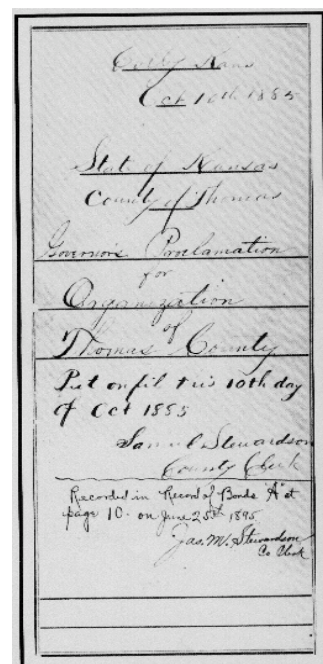 Colby Kans
Oct 10th 1885
State of Kansas
County of Thomas
Governor's Proclamation
for
Organization
of
Thomas County
Put on fil this 10th day
of Oct 1885
Samuel Stewardson
County Clerk
Recorded in Record of Bonds "A" at
page 10. on June 25th 1895
Jas. M. Stewardson
Co Clerk